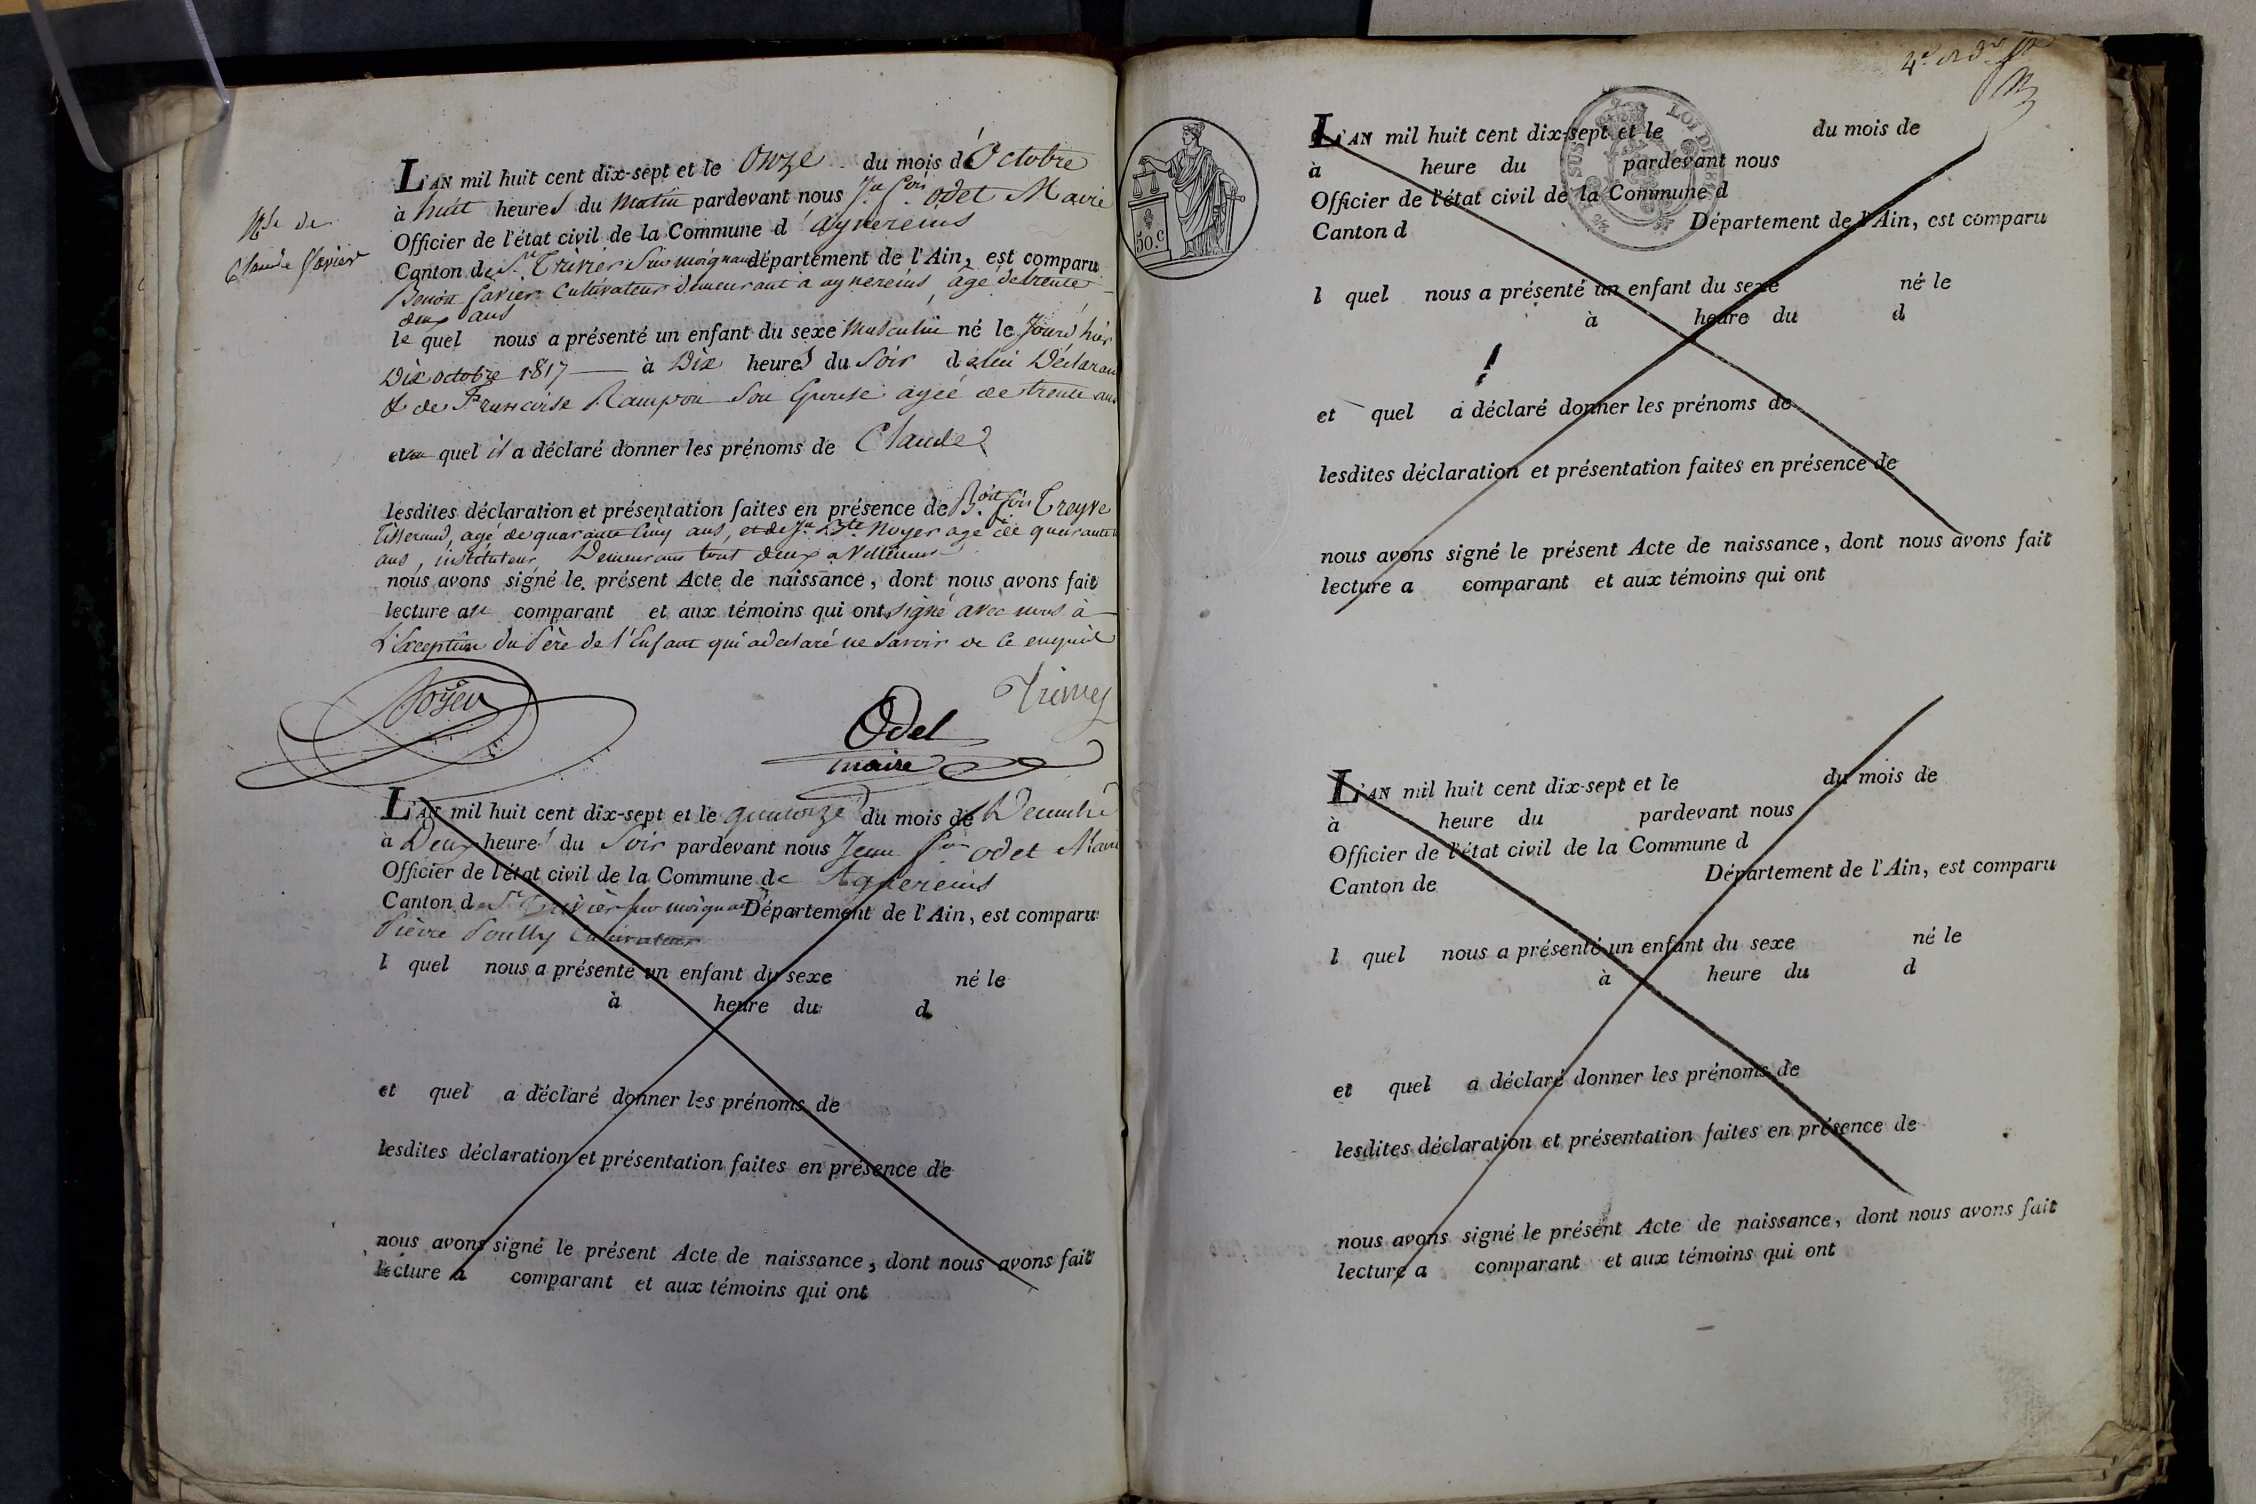 Nce de
Claude Savier
L'AN mil huit cent dix-sept et le Onze du mois d'Octobre
à huit heures du Matin pardevant nous Jn fois Odet Maire
Officier de l'état civil de la Commune d'aynereins
Canton de St. Trivier Sur moignand département de l'Ain, est comparu
Benoit Savier Cultivateur demeurant à aynereins, âgé detrente
deux ans
le quel nous a présenté un enfant du sexe Masculin né le Jourd'hier
Dix octobre 1817 à Dix heures du Soir de lui Déclarant
& de Francoise Rampon Son Epouse agée de trente ans
et au quel il a déclaré donner les prénoms de Claude
lesdites déclaration et présentation faites en présence de Boit fois Treyve
Tisserand, agé de quarante Cinq ans, et de Jn Bte Noyer agé de quarante
ans, instituteur, Demeurans tout deux a Villeneuve
nous avons signé le présent Acte de naissance, dont nous avons fait
lecture au comparant et aux témoins qui ont signé avec nous à
L'Exception du Père de l'Enfant qui a declaré ne Savoir de ce enquis
Noyer
Odet
maire
L'AN mil huit cent dix-sept et le quatorze du mois de Decembre
à Deux heures du Soir pardevant nous Jean fois odet Maire
Officier de l'état civil de la Commune de Aynereins
Canton de St Trivier sur moignand Département de l'Ain, est comparu
Pierre Poully Cultivateur
l quel nous a présenté un enfant du sexe né le
à heure du d
et quel a déclaré donner les prénoms de
lesdites déclaration et présentation faites en présence de
nous avons signé le présent Acte de naissance, dont nous avons fait
lecture a comparant et aux témoins qui ont
50.C
L'AN mil huit cent dix-sept et le du mois de
à heure du pardevant nous
Officier de l'état civil de la Commune d
Canton d Département de l'Ain, est comparu
l quel nous a présenté un enfant du sexe né le
à heure du d
et quel a déclaré donner les prénoms de
lesdites déclaration et présentation faites en présence de
nous avons signé le présent Acte de naissance, dont nous avons fait
lecture a comparant et aux témoins qui ont
L'AN mil huit cent dix-sept et le du mois de
à heure du pardevant nous
Officier de l'état civil de la Commune d
Canton de Département de l'Ain, est comparu
l quel nous a présenté un enfant du sexe né le
à heure du d
et quel a déclaré donner les prénoms de
lesdites déclaration et présentation faites en présence de
nous avons signé le présent Acte de naissance, dont nous avons fait
lecture a comparant et aux témoins qui ont